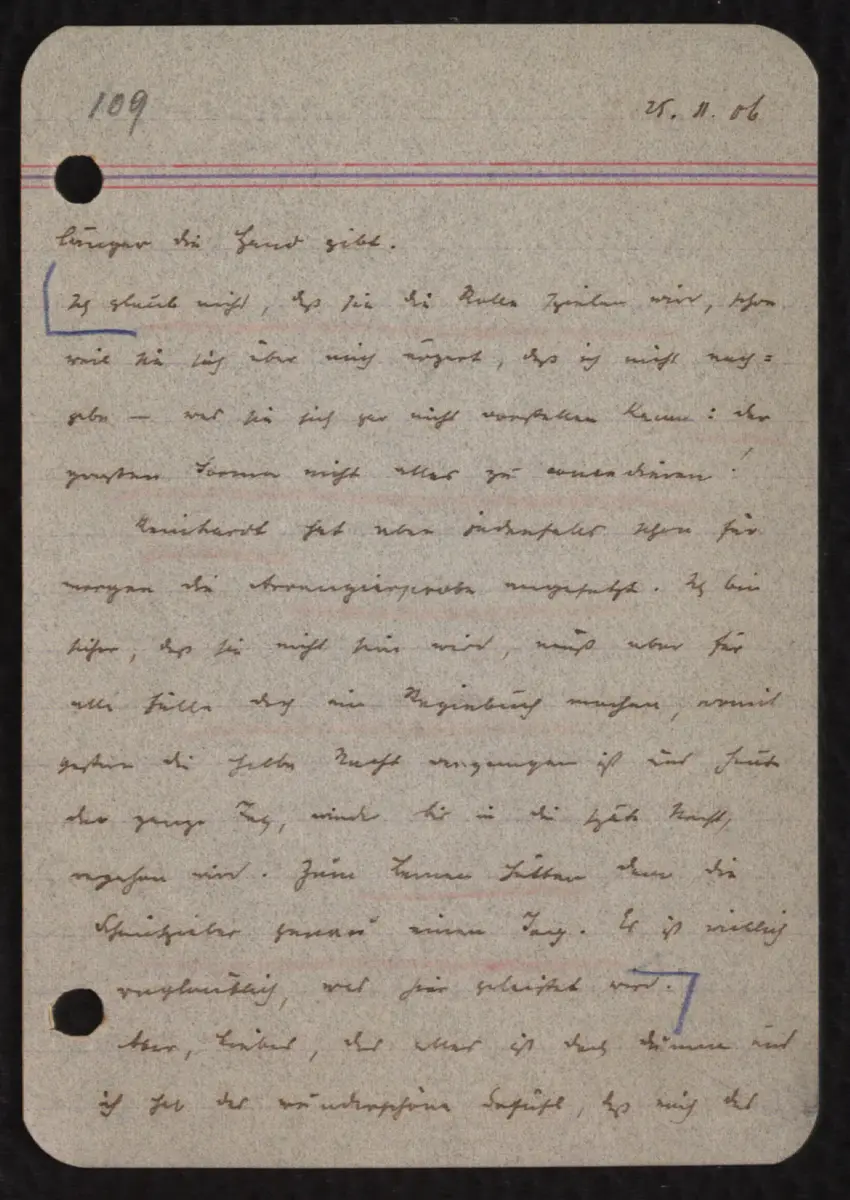 109
25. 11. 06
länger die Hand gibt.
Ich glaub nicht, daß sie die Rolle spielen wird, schon
weil sie sich über mich ärgert, daß ich nicht nach=
gebe — was sie sich gar nicht vorstellen kann: der
großen Sorma nicht alles zu concedieren!
Reinhardt hat aber jedenfalls schon für
morgen die Arrangierprobe angesetzt. Ich bin
sicher, daß sie nicht sein wird, muß aber für
alle Fälle doch ein Regiebuch machen, womit
gestern die halbe Nacht vergangen ist und heute
der ganze Tag, wieder bis in die späte Nacht,
vergehen wird. Zum Lernen hätten dann die
Schauspieler genau einen Tag. Es ist wirklich
unglaublich, was hier geleistet wird.
Aber, Liebes, das alles ist doch dumm und
ich hab das wunderschöne Gefühl, daß mich das